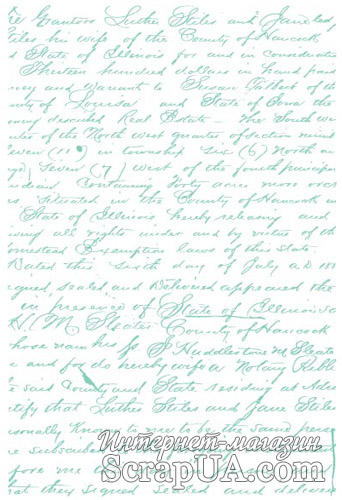 The Grantors Luther Stiles and Jane lady
Stiles his wife of the County of Hancock
and State of Illinois for and in consideration
Thirteen hundred dollars in hand paid
vey and warrant to Susan Talbot of the
unty of Louisa and State of Iowa the
owing described Real Estate – The South we
uarter of the North West quarter of section
even (11) in township six (6) North
Seven (7) West of the fourth principal
containing Forty acres more or
situated in the County of Hancock in
State of Illinois hereby releasing and
iving all rights under and by virtue of the
omestead Exemption laws of this State.
Dated this sixth day of July A.D. 18
igned, sealed and Delivered appeared the
in presence of State of Illinois
H. M. Sleater County of Hancock
hose name is J. Huddlestun M Sleate
e and for do hereby wife a Notary Public
e said County and State residing at
tify that Luther Stiles and Jane Stiles
sonally known to me to be the same
e subscribed
fore me
at they signed sealed and delivered
Интернет-магазин
ScrapUA.com